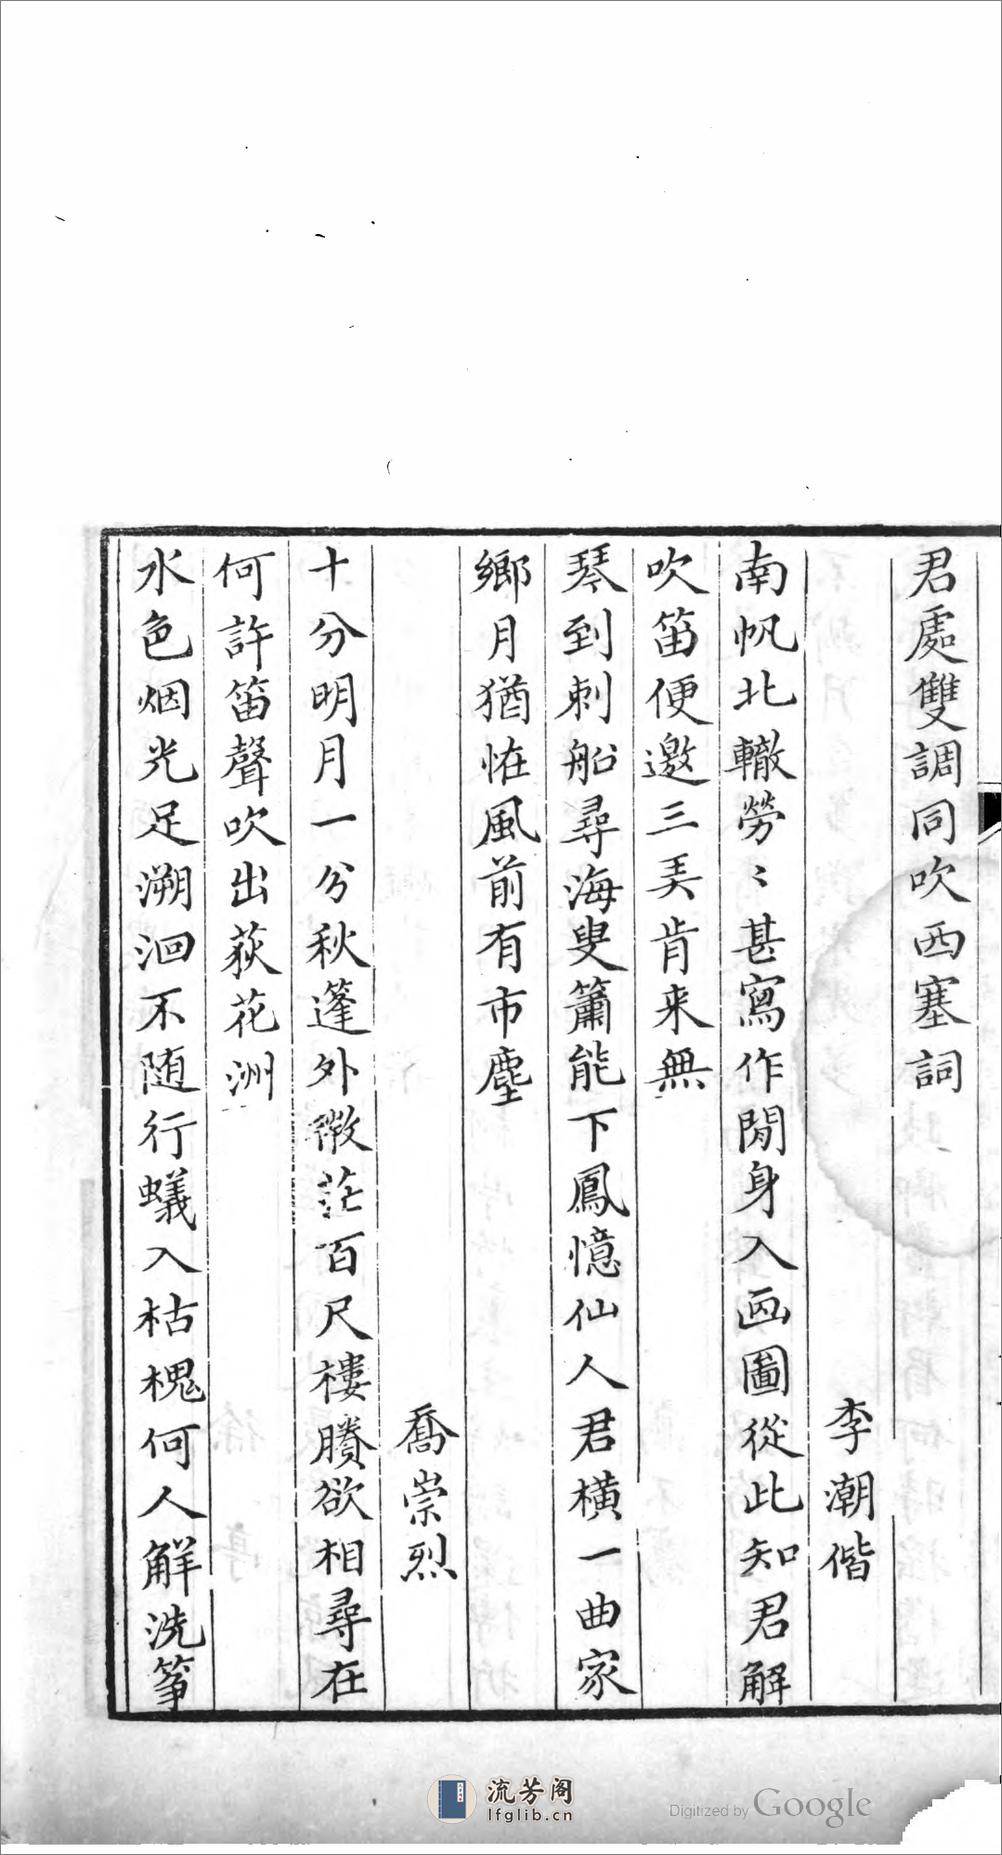 君處雙調同吹西塞詞
李潮偕
南帆北轍勞〻甚寫作閒身入画圖從此知君解
吹笛便邀三弄肯来無
琴到刺船尋海叟簫能下鳳憶仙人君横一曲家
鄉月猶恠風前有市塵
喬崇烈
十分明月一分秋篷外微茫百尺樓賸欲相尋在
何許笛聲吹出荻花洲
水色烟光足溯洄不随行蟻入枯槐何人解洗筝
流芳阁
lfglib.cn
Digitized by Google